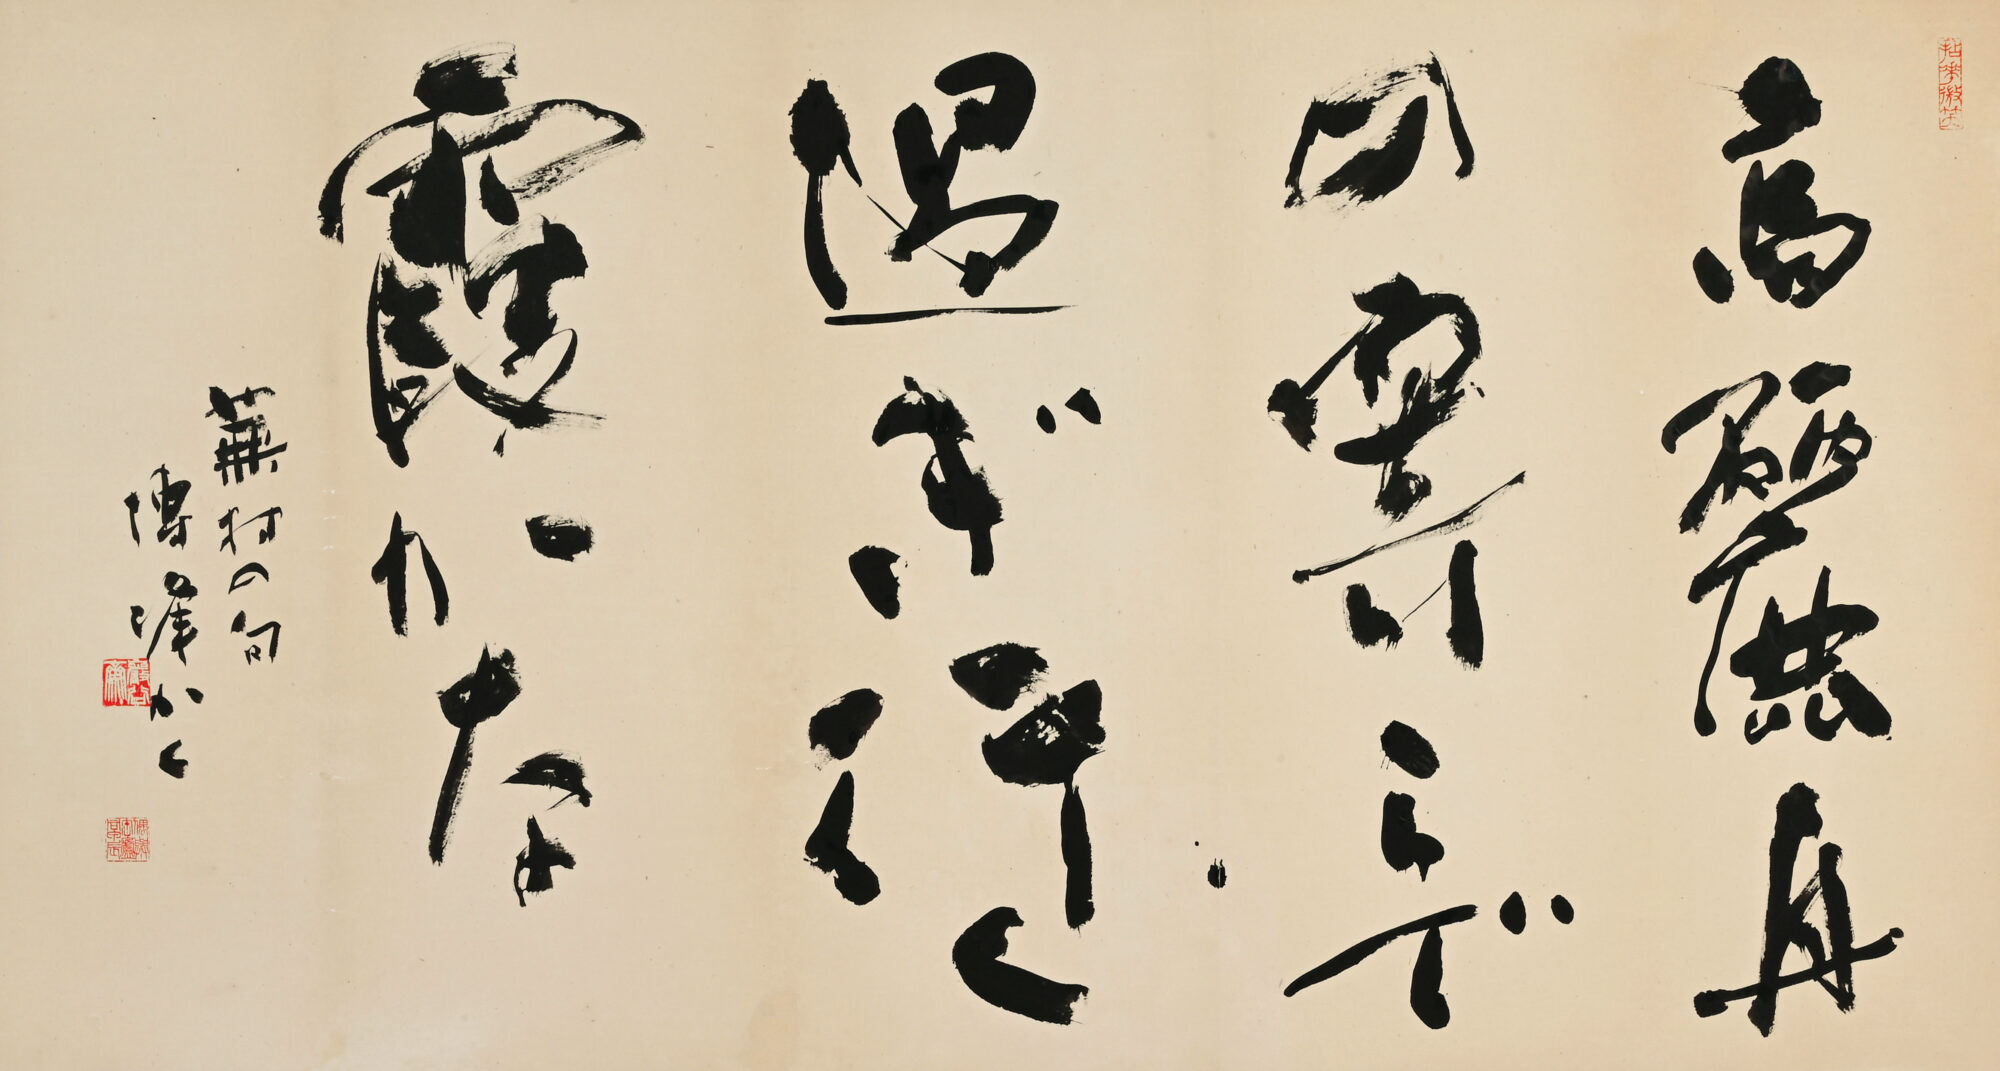 高麗舟
の寄らで
過ぎ行く
霞かな
蕪村の句
博峯かく